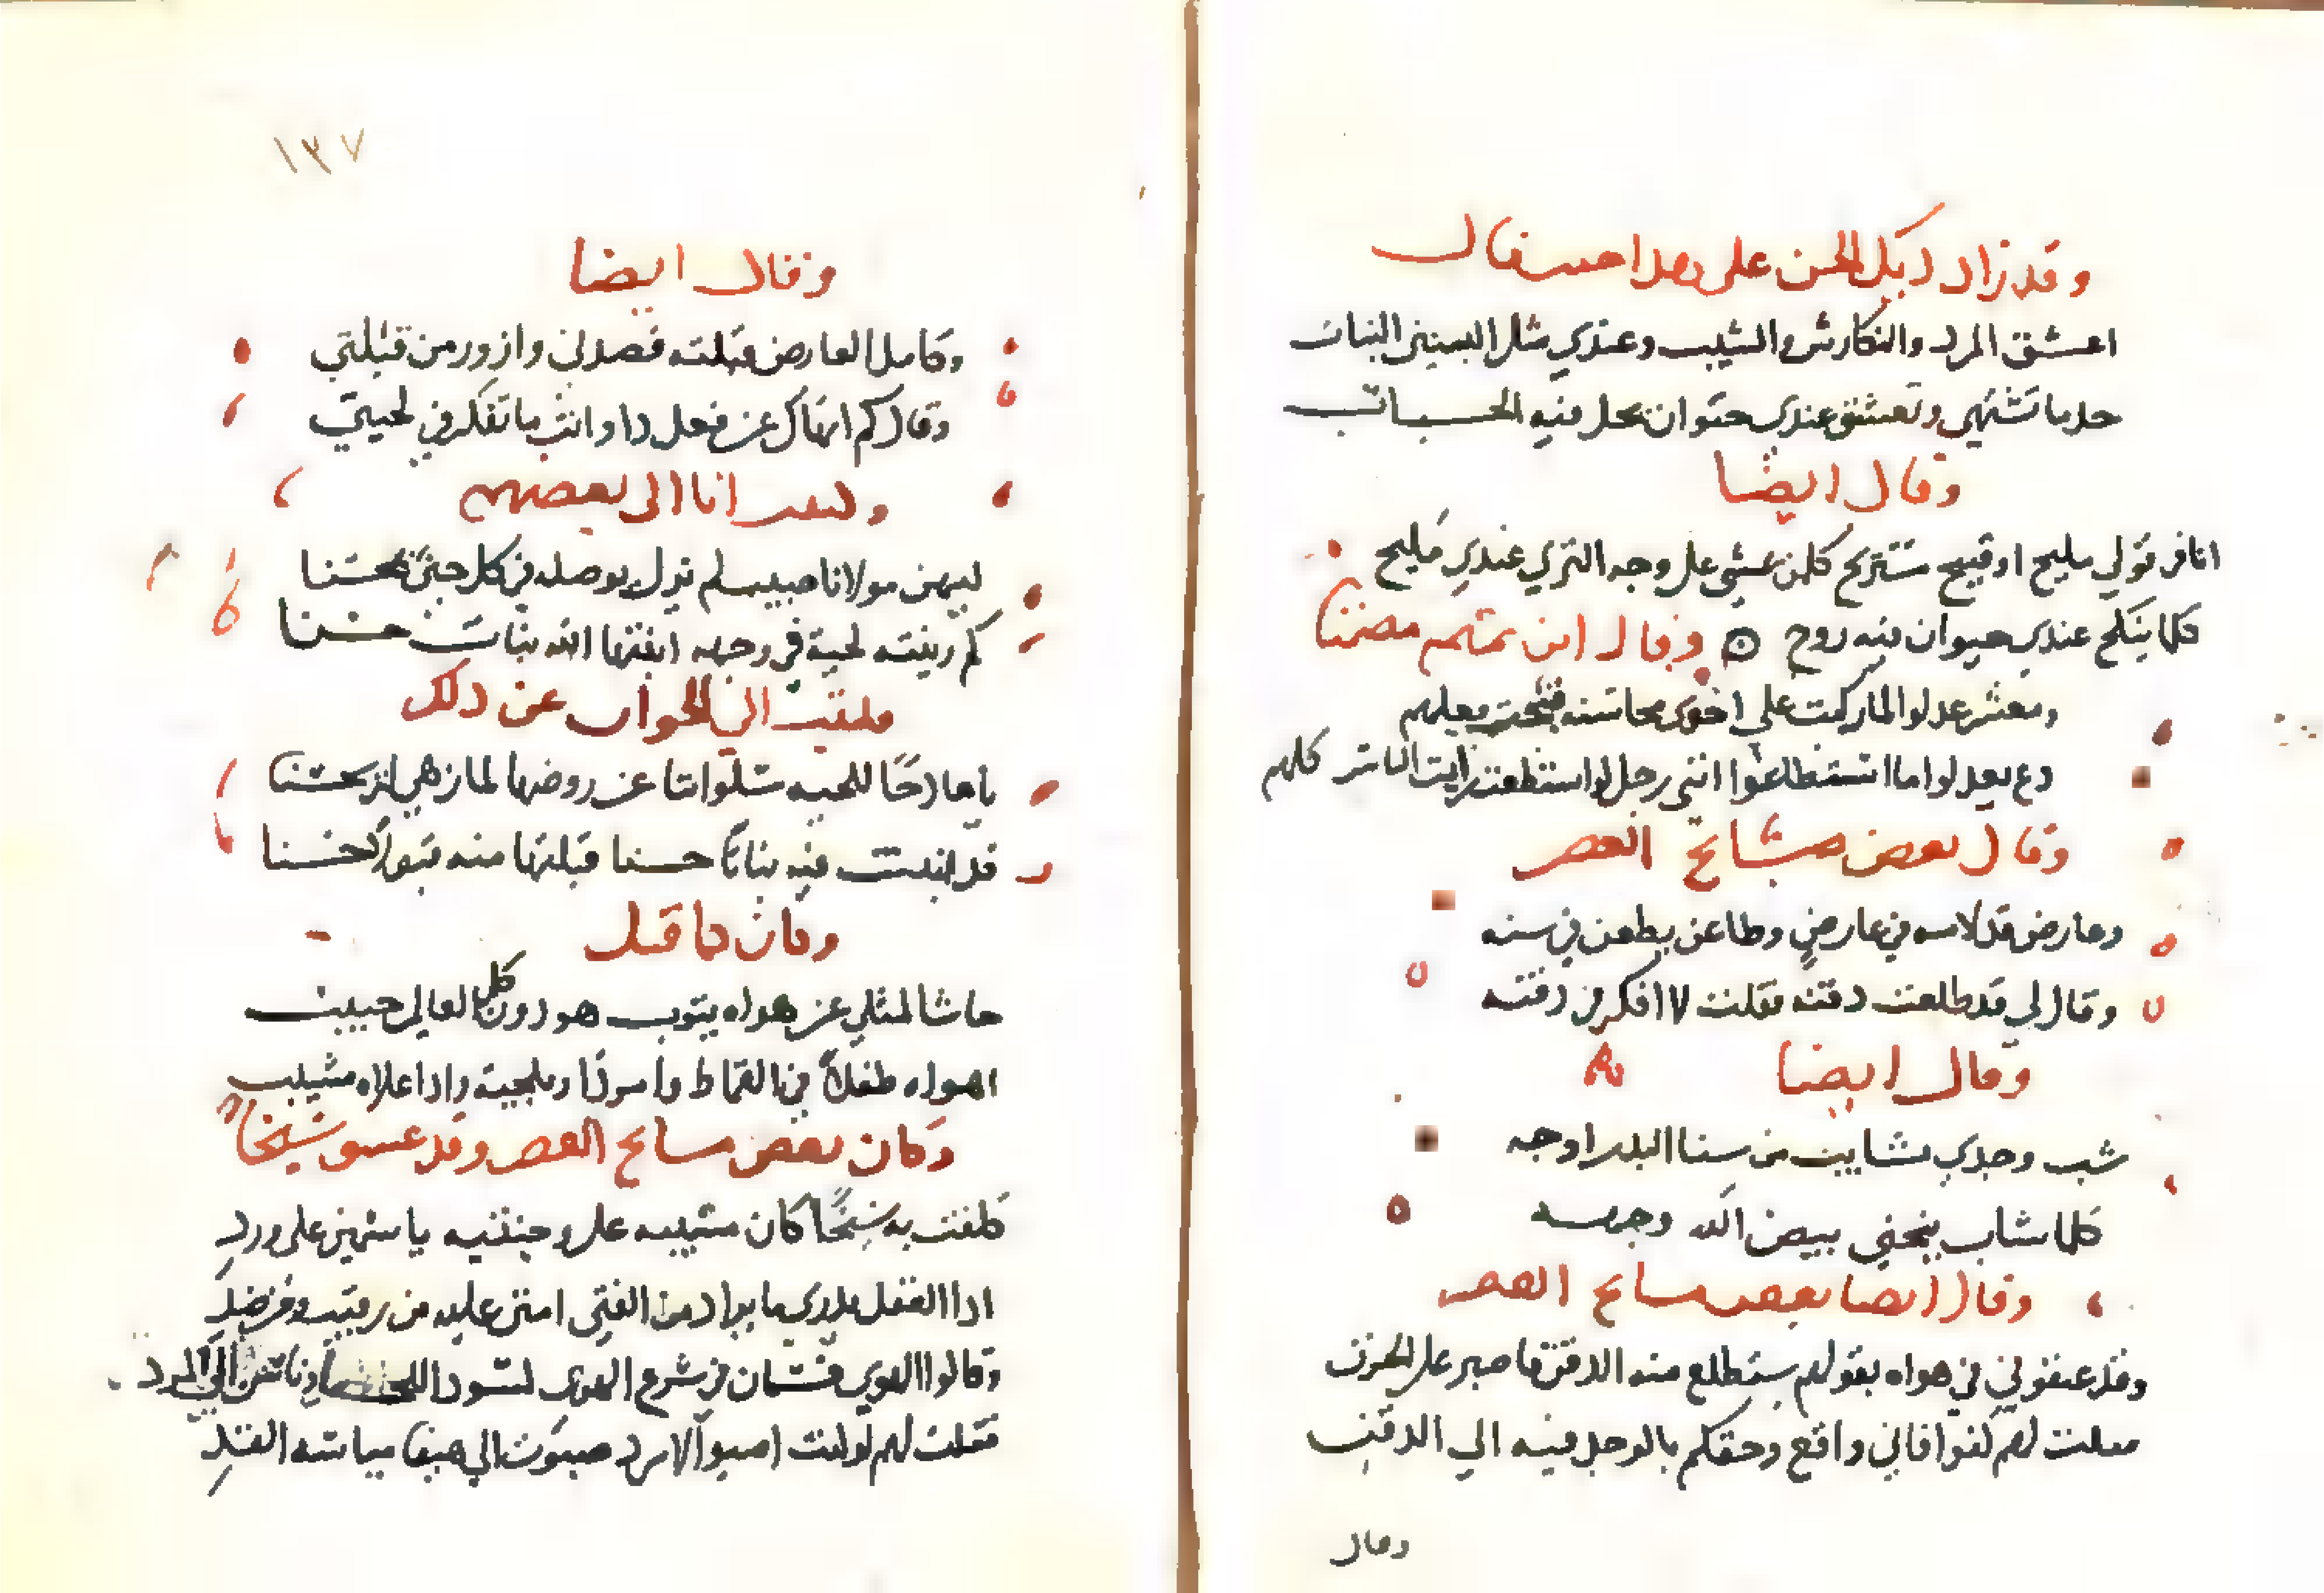 وقد زاد ديك الجن على هدا حيث قال
اعشق المرد والنكاريش والشيب وعندي مثل البنين البنات
حد ما تشتهي وتعشق عندي حيوان تحل فيه الحياة
وقال ايضا
انا في قولي مليح او قبيح مستريح كلمن يمشي على وجه الثري عندي مليح
كلما ينكح عندي حيوان فيه روح وقال ابن تميم مضمنا
ومعشر عدلوا لما ركبت علي اخوي محاسنه
دع يعدلوا ما استطاعوا انني رجل لو استطعت رايت الناس كلهم
وقال بعض مشايخ العصر
وعارض قد لام في عارض وطاعن يطعن في سنه
وقال لي قد طلعت دقنه فقلت لا افكر في دقنه
وقال ايضا
شب وجدي بشايب من سنا البدر اوجه
كلما شاب ينحني بيض الله وجهه
وقال ايضا بعض مشايخ العصر
وقد عنفوني في هواه بقولهم ستطلع منه الدقن فاصبر على الحزن
فقلت لهم كفوا فاني واقع وحقكم بالوحل فيه الي الدقن
وقال
١٣٧
وقال ايضا
وكامل العارض قبلته فصدني وازور من قبلتي
وقال كم انهاك عن فعل دا وانت ما تفكر في لحيتي
وكتبت انا الى بعضهم
ليهن مولانا حبيب لم يزل يوصله في كل حين محسنا
كم زينت لحية في وجهه انبتها الله نباتا حسنا
فكتب الي الجواب عن ذلك
يا مادحا للحيه سلواننا عن روضها لما زهي لن يحسنا
قد انبتت فيه نباتا حسنا قبلتها منه قبولا حسنا
وكان كما قيل
حاشا لمثلي عن هواه يتوب هو دون كل العالمي حبيب
اهواه طفلا في القماط وامردا وبلحية وادا علاه مشيب
وكان بعض مشايخ العصر وقد عشق شيخا
كلفت به شيخا كان مشيبه على وجنتيه ياسمين على ورد
ادا العقل يدري ما يراد من الفتي امنت عليه من رقيب ومن ضد
وقالوا الوري قسمان في شرع الهوي لسود اللحي ناس وناس الي المرد
فقلت لهم لو كنت اصبوا لامرد صبوت الي هيفا مياسة القد